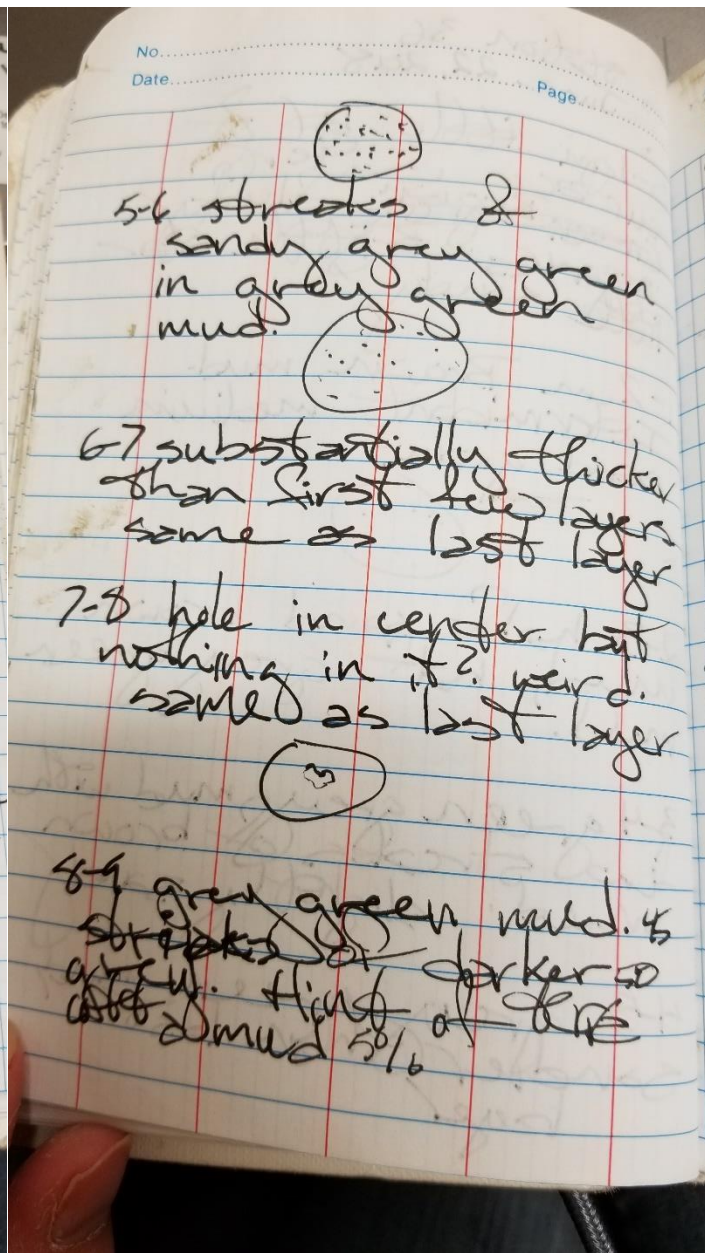 No.
Date
Page
5-6 streaks of
sandy grey green
in grey green
mud.
6-7 substantially thicker
than first few layers
same as last layer
7-8 hole in center but
nothing in it? weird.
same as last layer
8-9 grey green mud. 45
streaks of darker 50
grey. Hint of
mud 5%